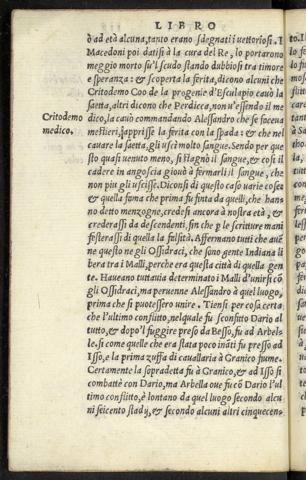 LIBRO
ò ad età alcuna, tanto erano sdegnati i vettoriosi. I
Macedoni poi datisi à la cura del Re, lo portarono
meggio morto su'l scudo stando dubbiosi tra timore
e speranza: & scoperta la ferita, dicono alcuni che
Critodemo Coo de la progenie d'Esculapio cauò la
saetta, altri dicono che Perdicca, non v'essendo il me
Critodemo
medico.
dico, la cauò commandando Alessandro che se faceua
mestieri, s'apprisse la ferita con la spada: & che nel
cauare la saetta, gli uscì molto sangue. Sendo per que
sto quasi uenuto meno, si stagnò il sangue, & così il
cadere in angoscia giouò à fermarli il sangue, che
non piu gli uscisse. Diconsi di questo caso uarie cose:
& quella fama che prima fu finta da quelli, che han
no detto menzogne, credesi ancora à nostra età, &
crederassi da descendenti, fin che p le scritture mani
festerassi di quella la falsità. Affermano tutti che auē
ne questo ne gli Ossidraci, che sono gente Indiana li
bera tra i Malli, perche era questa città di quella gen
te. Haueano tuttauia determinato i Malli d'unirsi cō
gli Ossidraci, ma peruenne Alessandro à quel luogo,
prima che si puotessero unire. Tiensi per cosa certa
che l'ultimo conflitto, nel quale fu sconfitto Dario al
tutto, & dopo'l fuggire preso da Besso, fu ad Arbel=
le. si come quelle che era stata poco ināti fu presso ad
Isso, e la prima zuffa di cauallaria à Granico fiume.
Certamente la sopradetta fu à Granico, & ad Isso si
combattè con Dario, ma Arbella oue fu cō Dario l'ul
timo conflitto, è lontano da quel luogo secondo alcu
ni seicento stadij, & secondo alcuni altri cinquecen-